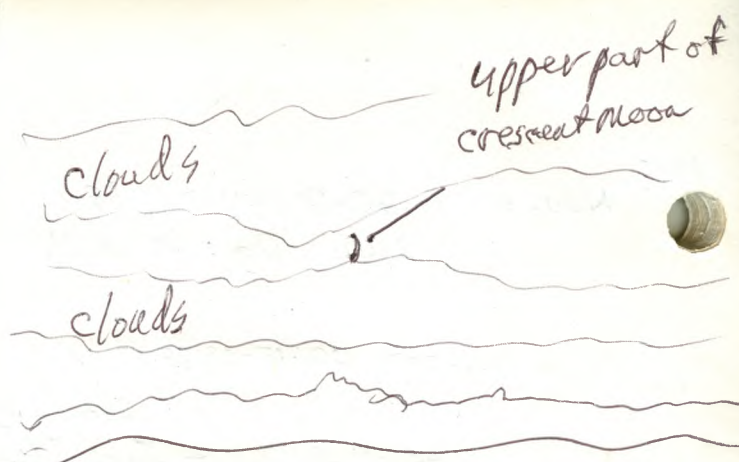 upper part of
crescent moon
clouds
clouds